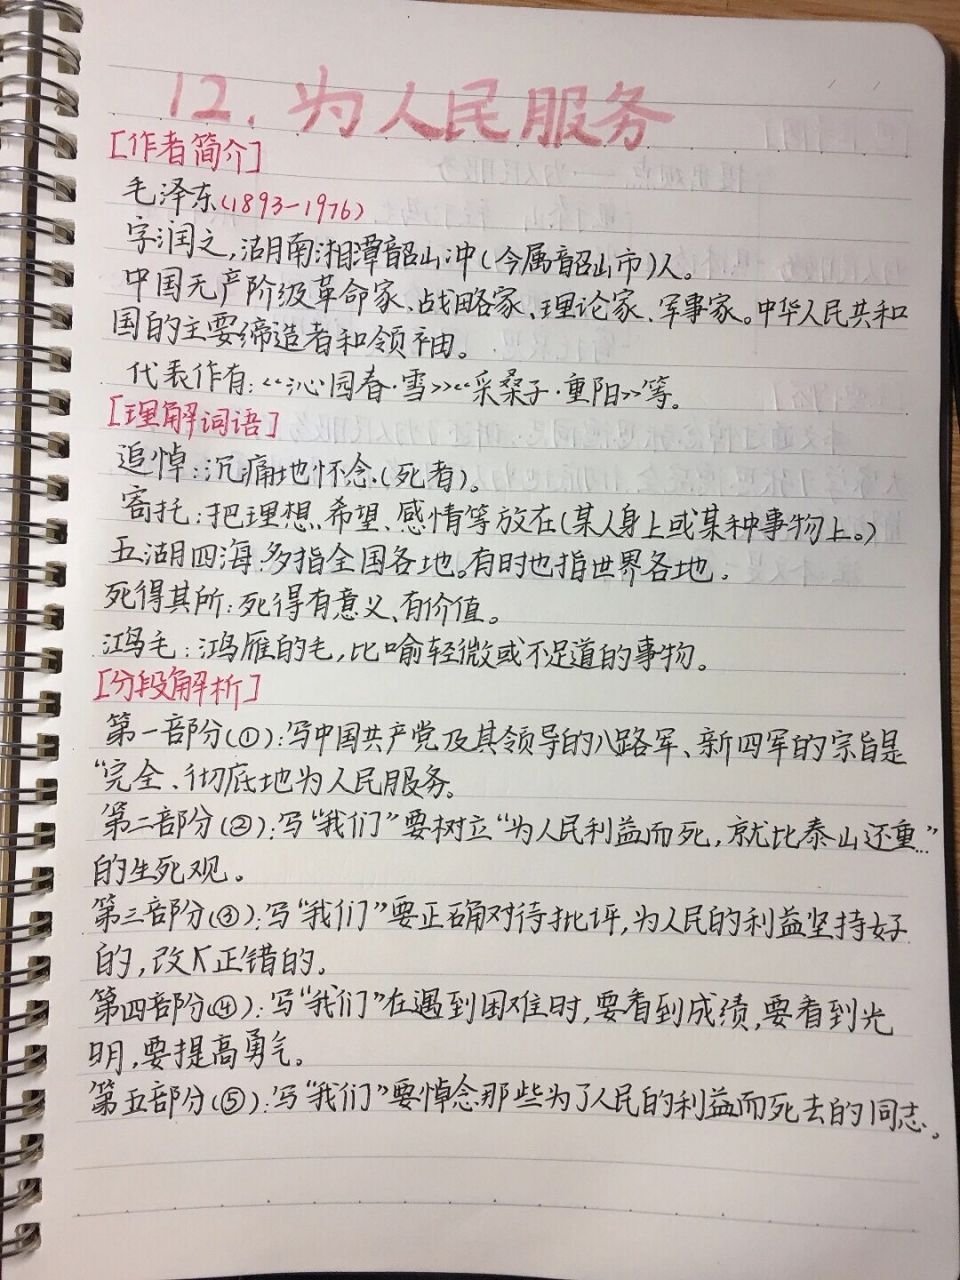 12.为人民服务
[作者简介]
毛泽东(1893-1976)
字润之,湖南湘潭韶山冲(今属韶山市)人。
中国无产阶级革命家、战略家、理论家、军事家。中华人民共和
国的主要缔造者和领袖。
代表作有:《沁园春·雪》《采桑子·重阳》等。
[理解词语]
追悼:沉痛地怀念(死者)。
寄托:把理想、希望、感情等放在(某人身上或某种事物上。)
五湖四海:多指全国各地。有时也指世界各地。
死得其所:死得有意义、有价值。
鸿毛:鸿雁的毛,比喻轻微或不足道的事物。
[分段解析]
第一部分(①):写中国共产党及其领导的八路军、新四军的宗旨是
“完全、彻底地为人民服务。
第二部分(②):写“我们”要树立“为人民利益而死,就比泰山还重…”
的生死观。
第三部分(③):写“我们”要正确对待批评,为人民的利益坚持好
的,改正错的。
第四部分(④):写“我们”在遇到困难时,要看到成绩,要看到光
明,要提高勇气。
第五部分(⑤):写“我们”要悼念那些为了人民的利益而死去的同志。